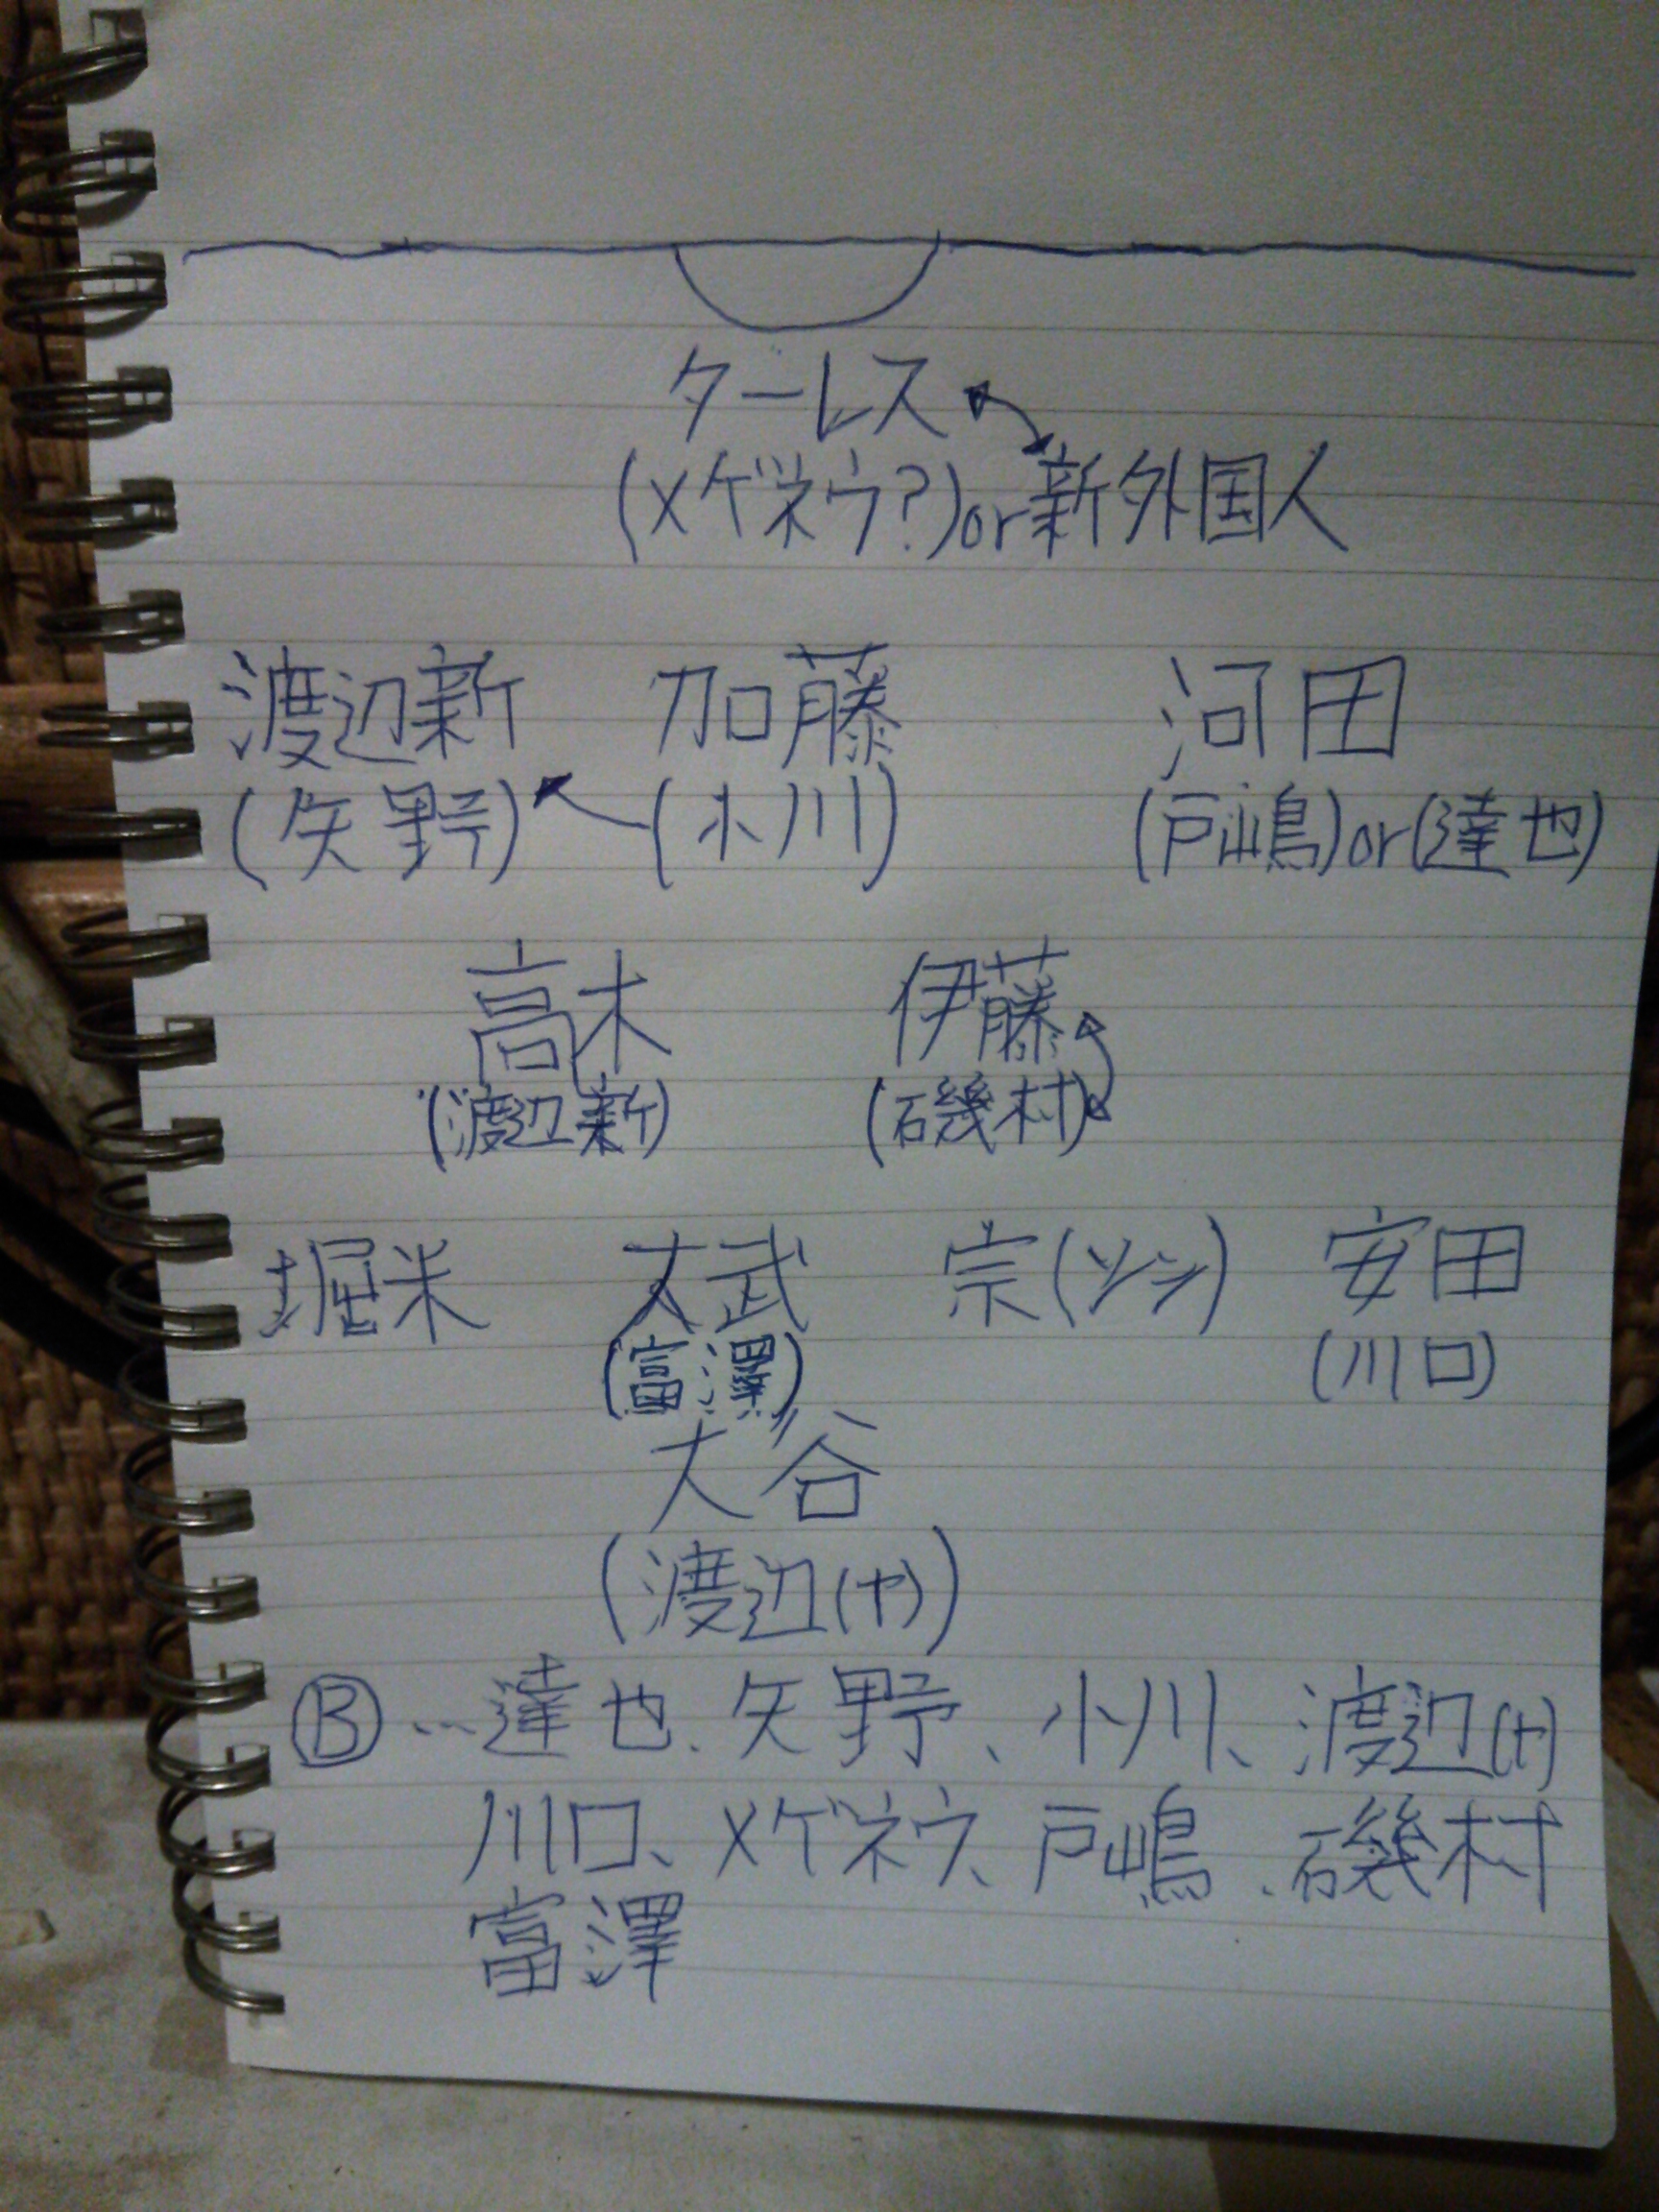 ターレス
(メゲネウ?)or新外国人
渡辺新 加藤 河田
(矢野) (小川) (戸嶋)or(達也)
高木 伊藤
(渡辺新) (磯村)
堀米 大武 宗(ソン) 安田
(富澤) (川口)
大谷
(渡辺(ヤ))
Ⓑ…達也、矢野、小川、渡辺(ヤ)
川口、メゲネウ、戸嶋、磯村
富澤